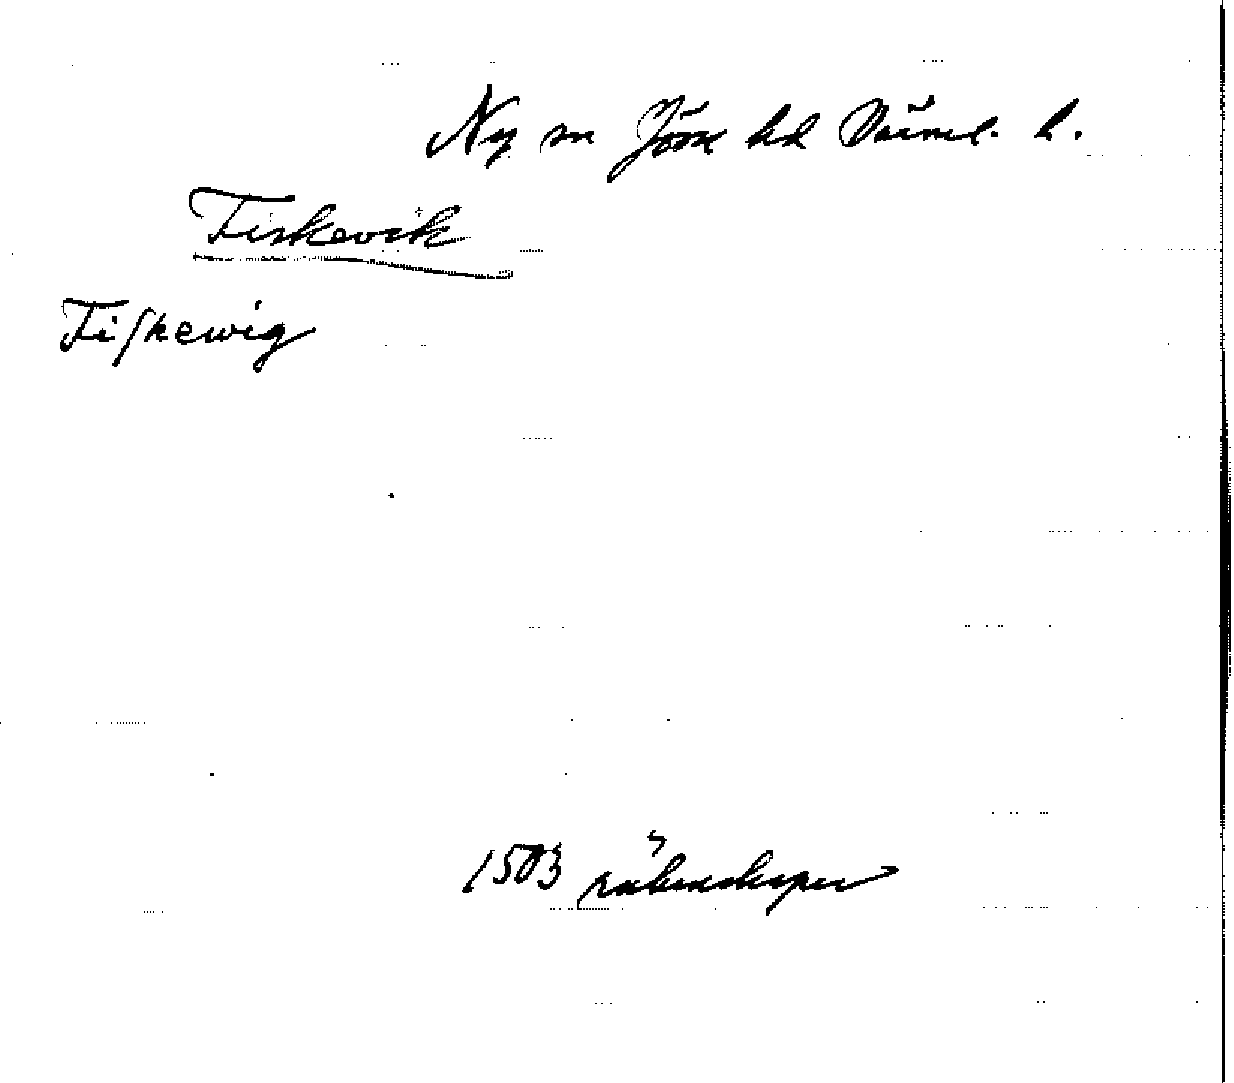 Ny sn Jösse hd Värml. l.
Fiskevik
Fiſkewig
1503 räkenskaper